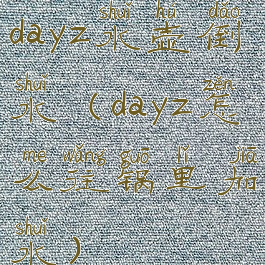 dayz水壶倒
水(dayz怎
么往锅里加
水)